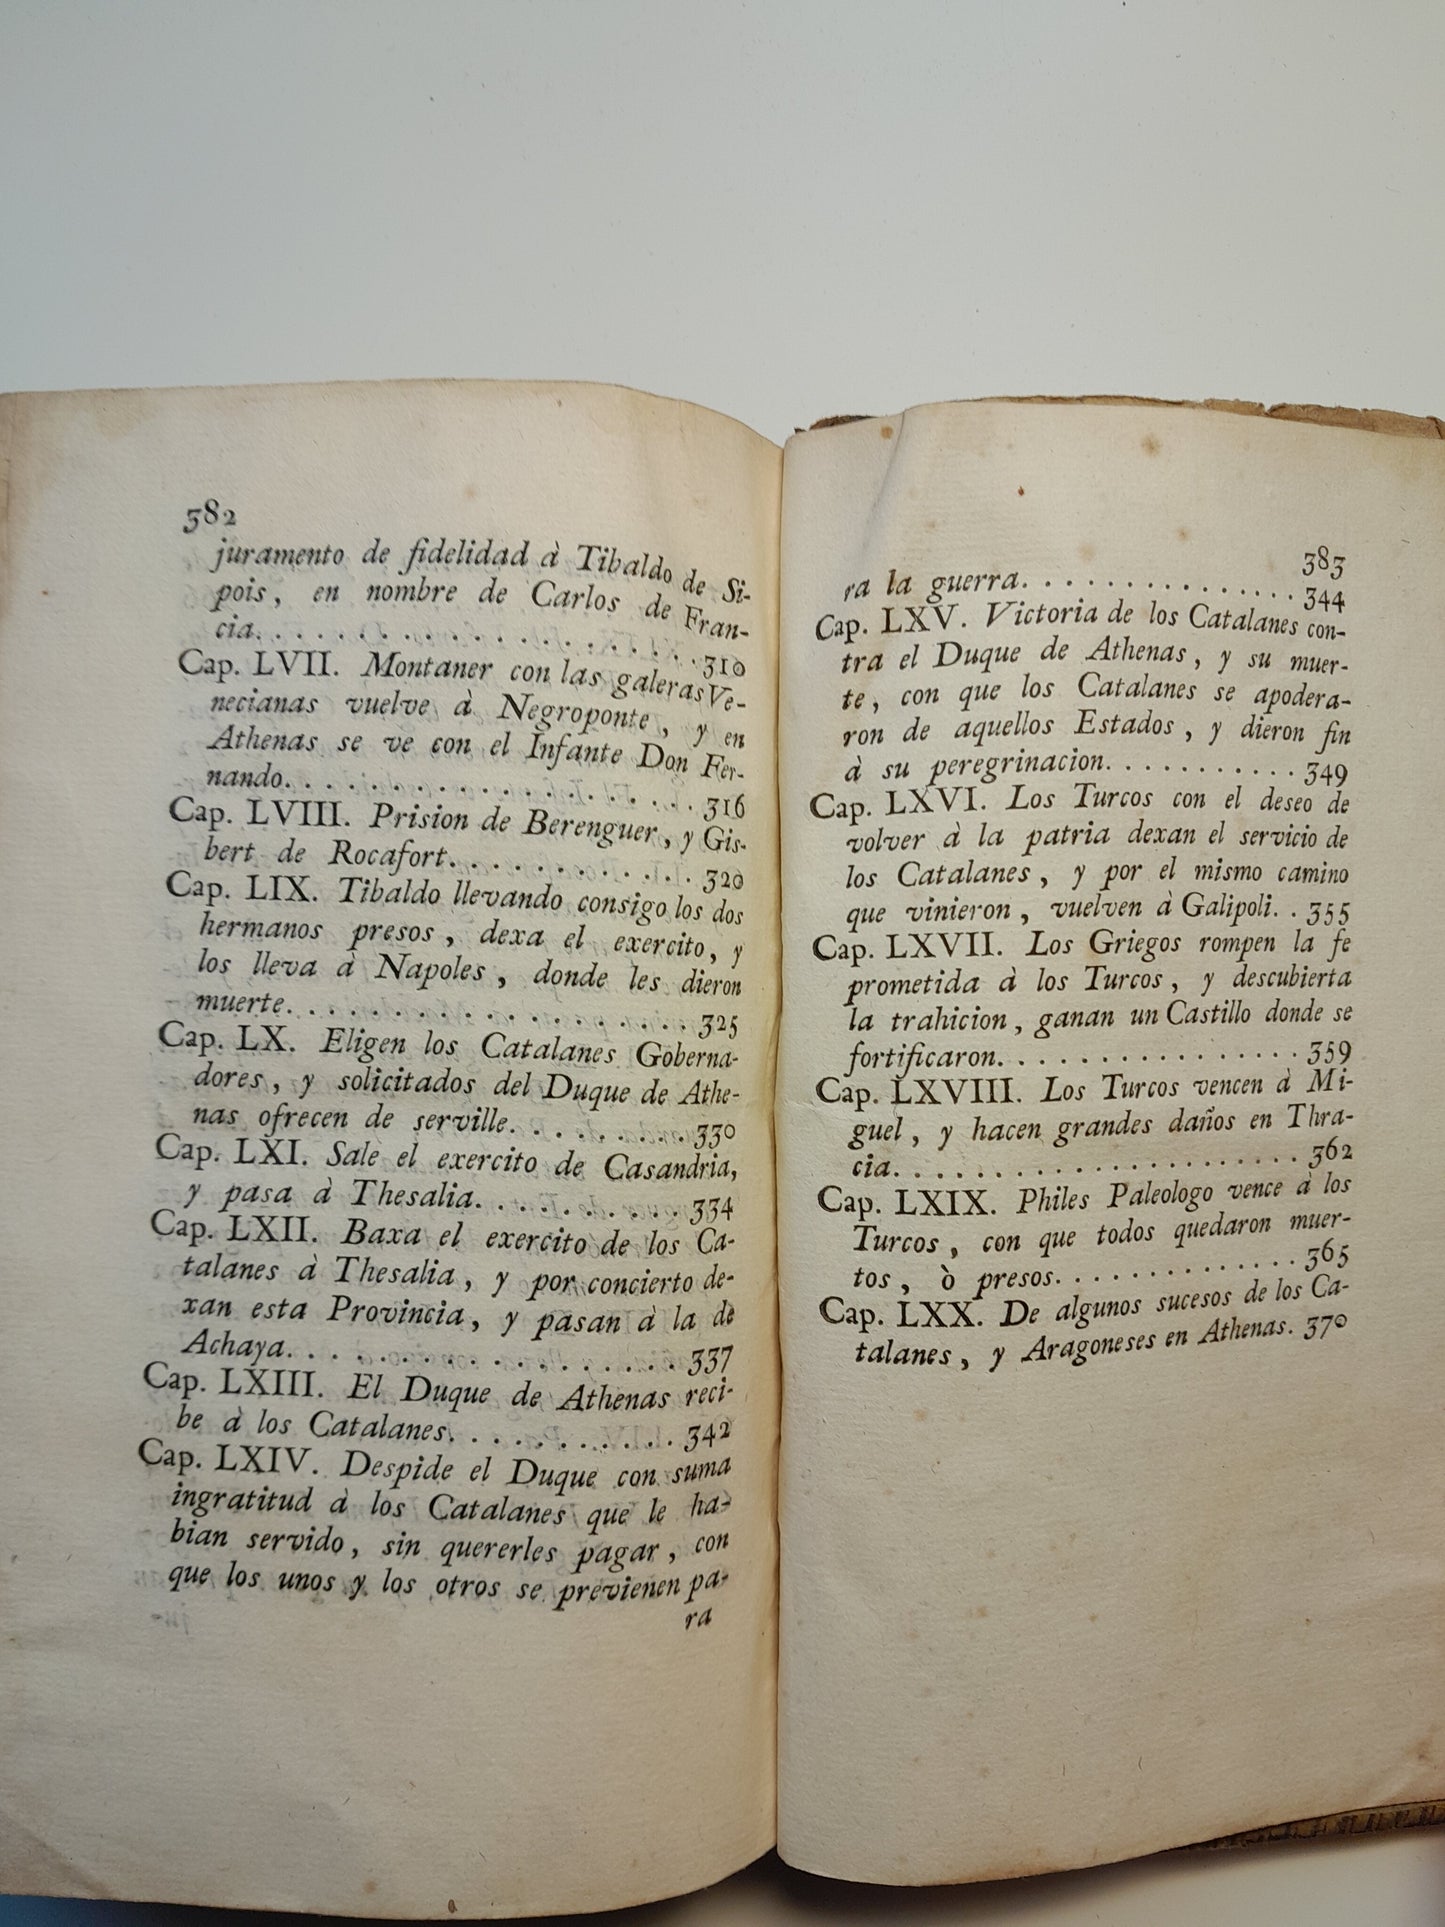 382
juramento de fidelidad à Tibaldo de Si-
pois, en nombre de Carlos de Fran-
cia. . . . . . . . . . . . . . . . . . . 310
Cap. LVII. Montaner con las galeras Ve-
necianas vuelve à Negroponte, y en
Athenas se ve con el Infante Don Fer-
nando. . . . . . . . . . . . . . . . . . 316
Cap. LVIII. Prision de Berenguer, y Gis-
bert de Rocafort. . . . . . . . . . . 320
Cap. LIX. Tibaldo llevando consigo los dos
hermanos presos, dexa el exercito, y
los lleva à Napoles, donde les dieron
muerte. . . . . . . . . . . . . . . . . . 325
Cap. LX. Eligen los Catalanes Goberna-
dores, y solicitados del Duque de Athe-
nas ofrecen de serville. . . . . . . . . 330
Cap. LXI. Sale el exercito de Casandria,
y pasa à Thesalia. . . . . . . . . . 334
Cap. LXII. Baxa el exercito de los Ca-
talanes à Thesalia, y por concierto de-
xan esta Provincia, y pasan à la de
Achaya. . . . . . . . . . . . . . . . . . 337
Cap. LXIII. El Duque de Athenas reci-
be à los Catalanes. . . . . . . . . . . 342
Cap. LXIV. Despide el Duque con suma
ingratitud à los Catalanes que le ha-
bian servido, sin quererles pagar, con
que los unos y los otros se previenen pa-
ra
383
ra la guerra. . . . . . . . . . . . . . . 344
Cap. LXV. Victoria de los Catalanes con-
tra el Duque de Athenas, y su muer-
te, con que los Catalanes se apodera-
ron de aquellos Estados, y dieron fin
à su peregrinacion. . . . . . . . . . . 349
Cap. LXVI. Los Turcos con el deseo de
volver à la patria dexan el servicio de
los Catalanes, y por el mismo camino
que vinieron, vuelven à Galipoli. . 355
Cap. LXVII. Los Griegos rompen la fe
prometida à los Turcos, y descubierta
la trahicion, ganan un Castillo donde se
fortificaron. . . . . . . . . . . . . . . . 359
Cap. LXVIII. Los Turcos vencen à Mi-
guel, y hacen grandes daños en Thra-
cia. . . . . . . . . . . . . . . . . . . . . 362
Cap. LXIX. Philes Paleologo vence à los
Turcos, con que todos quedaron muer-
tos, ò presos. . . . . . . . . . . . . . 365
Cap. LXX. De algunos sucesos de los Ca-
talanes, y Aragoneses en Athenas. 370